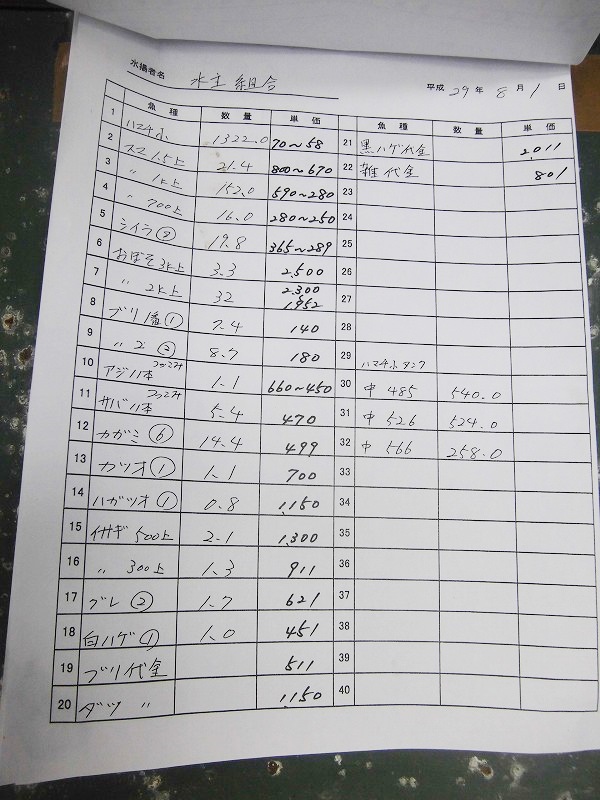 水揚者名 水主組合
平成 29 年 8 月 1 日
魚種 数量 単価
1 ハマチ小 1322.0 70〜58
2 スマ 1.5上 21.4 800〜670
3 〃 1k上 152.0 590〜280
4 〃 700上 16.0 280〜250
5 シイラ② 19.8 365〜289
6 おぼそ 3k上 3.3 2,500
7 〃 2k上 32 2,300 1,952
8 ブリ 1番① 7.4 140
9 〃 2 ② 8.7 180
10 アジ 八本 つっこみ 1.1 660〜450
11 サバ 八本 つっこみ 5.4 470
12 カガミ⑥ 14.4 499
13 カツオ① 1.1 700
14 ハガツオ① 0.8 1,150
15 イサギ 500上 2.1 1,300
16 〃 300上 1.3 911
17 グレ② 1.7 621
18 白ハゲ① 1.0 451
19 ブリ代金 511
20 ダツ 〃 1,150
魚種 数量 単価
21 黒ハゲ代金 2,011
22 雑代金 801
23
24
25
26
27
28
29 ハマチ小タンク
30 中 485 540.0
31 中 526 524.0
32 中 566 258.0
33
34
35
36
37
38
39
40